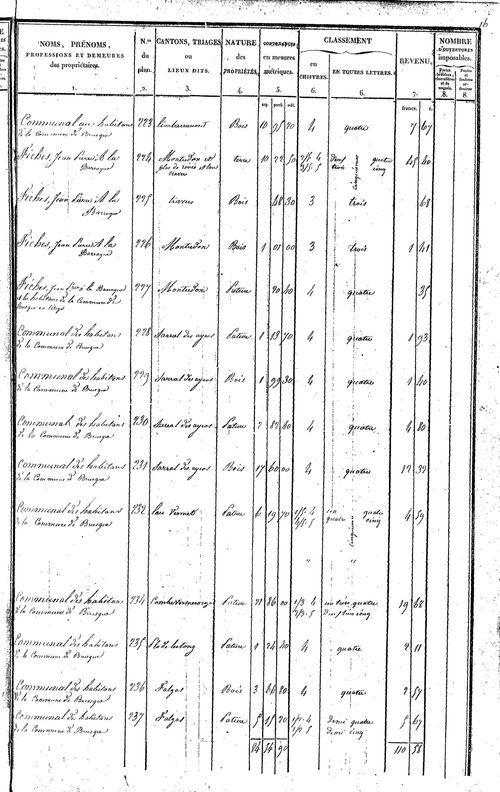 16
NOMS, PRÉNOMS, PROFESSIONS ET DEMEURES des propriétaires.
N.os du plan.
CANTONS, TRIAGES ou LIEUX DITS.
NATURE des PROPRIÉTÉS.
CONTENANCES en mesures métriques.
CLASSEMENT
en CHIFFRES.
EN TOUTES LETTRES.
REVENU,
NOMBRE D'OUVERTURES imposables.
1. 2. 3. 4. 5. 6. 6. 7. 8. 8.
francs. c.
Communal aux habitans 223 Bois 10 95 20 4 quatre 7 67
de la Commune de Brusque
Fiches, Jean Pierre A la 224 Montredon et terre 10 22 50 2/5 4 deux quatre 45 40
Barraque 3/5 5 trois cinquièmes cinq
Fiches, Jean Pierre A la 225 travers Bois 48 30 3 trois 68
Barraque
Fiches, Jean Pierre A la 226 Montredon Bois 1 01 00 3 trois 1 41
Barraque
Fiches, Jean Pierre à la Barraque 227 Montredon Pature 20 40 4 quatre 35
et les habitans de la Commune de
Brusque
Communal des habitans 228 Sarral des ayres Pature 1 13 70 4 quatre 1 93
de la Commune de Brusque
Communal des habitans 229 Sarral des ayres Bois 1 99 30 4 quatre 1 40
de la Commune de Brusque
Communal des habitans 230 Sarral des ayres Pature 2 82 40 4 quatre 4 80
de la Commune de Brusque
Communal des habitans 231 Sarral des ayres Bois 17 60 00 4 quatre 12 32
de la Commune de Brusque
Communal des habitans 232 Pature 6 19 70 1/5 4 un quatre 4 59
de la Commune de Brusque 4/5 5 quatre cinquièmes cinq
" "
Communal des habitans 234 Pature 21 86 00 1/3 4 un tiers quatre 19 68
de la Commune de Brusque 2/3 5 deux tiers cinq
Communal des habitans 235 Pature 1 24 40 4 quatre 2 11
de la Commune de Brusque
Communal des habitans 236 Falgas Bois 3 66 80 4 quatre 2 57
de la Commune de Brusque
Communal des habitans 237 Falgas Pature 5 15 20 1/2 4 demi quatre 5 67
de la Commune de Brusque 1/2 5 demi cinq
84 54 90 110 58